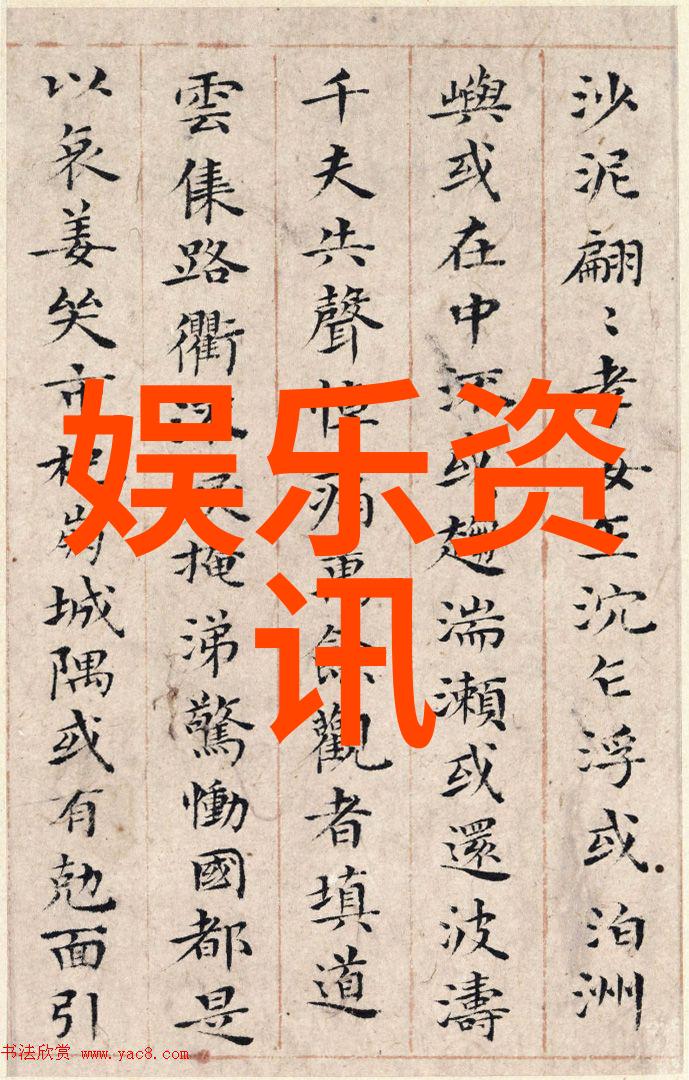 沙泥翩〻孝女乍沉乍浮或泊洲
嶼或在中流或趨湍瀨或還波濤
千夫共聲悼痛萬餘觀者填道
雲集路衢流掩涕驚慟國都是
以哀姜哭市杞崩城隅或有剋面引
娱乐资
讯
书法欣赏 www.yac8.com